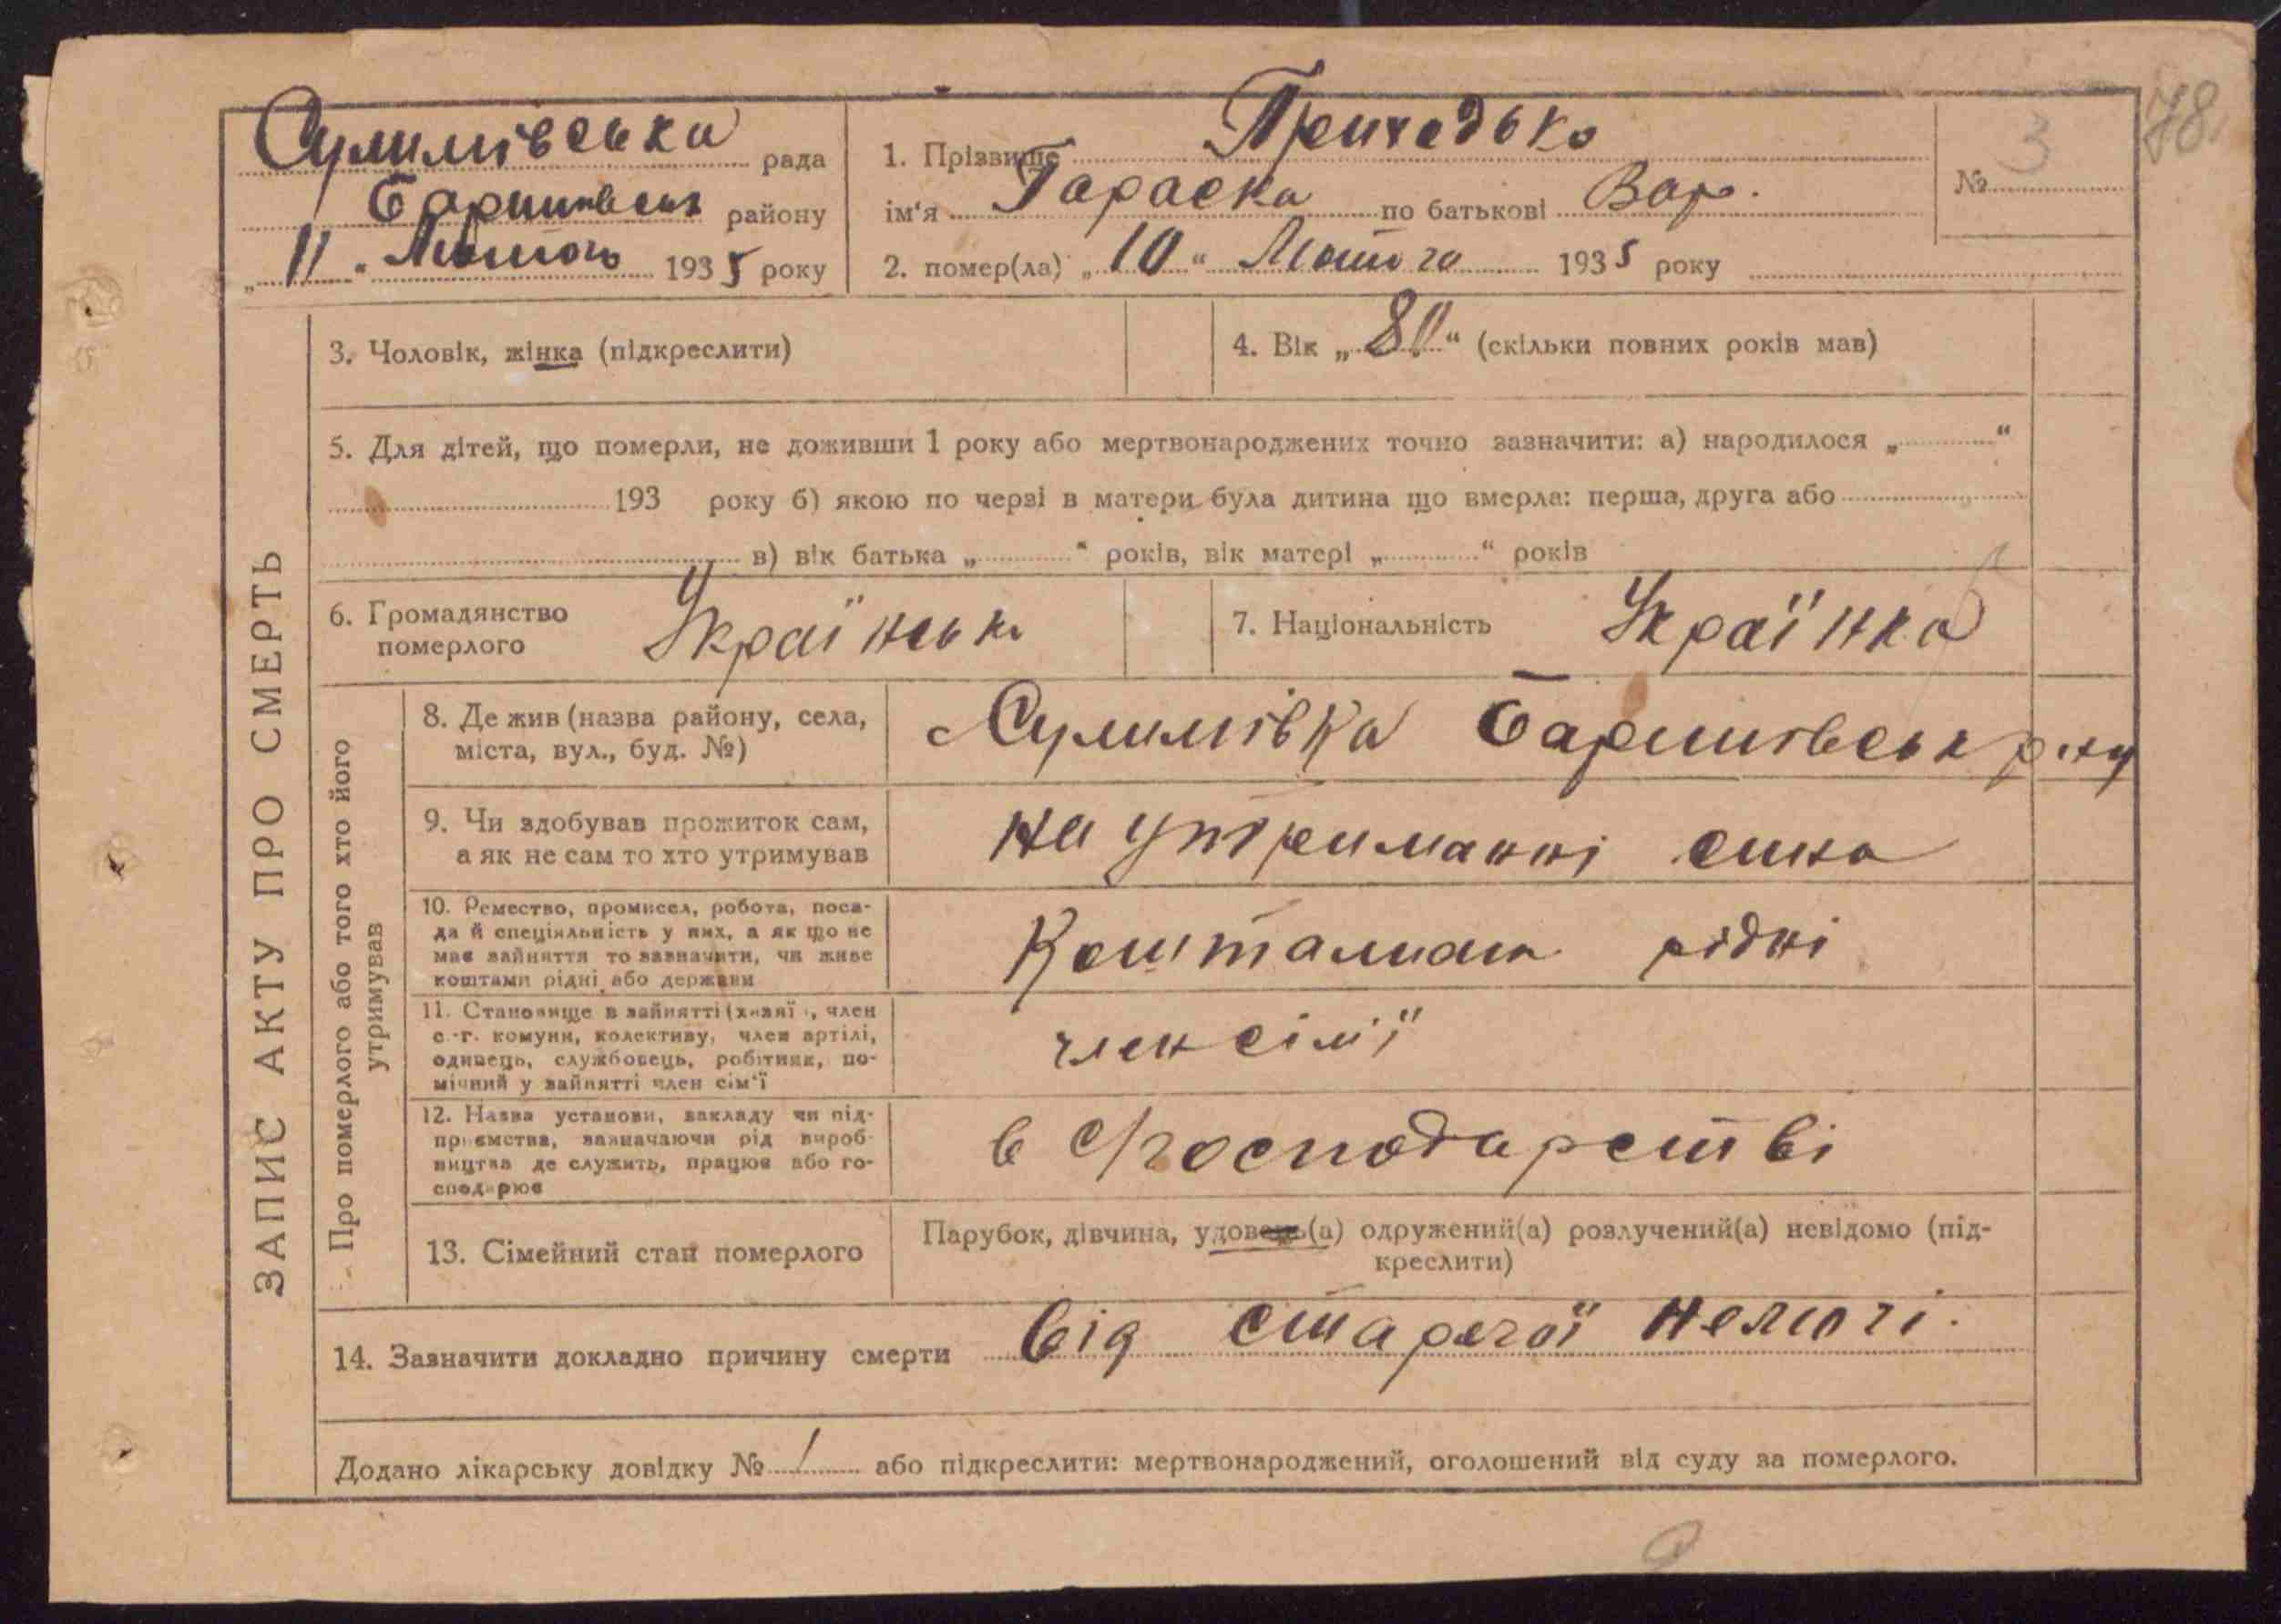 78
Сулимівська рада
Баришівськ району
„ 11 “ Лютого 1935 року
1. Прізвище
ім‘я Параска по батькові Вар.
2. помер(ла) „ 10 “ Лютого 1935 року
№ 3
ЗАПИС АКТУ ПРО СМЕРТЬ
3. Чоловік, жінка (підкреслити)
4. Вік „ 80 “ (скільки повних років мав)
5. Для дітей, що померли, не доживши 1 року або мертвонароджених точно зазначити: а) народилося „ “
193 року б) якою по черзі в матери була дитина що вмерла: перша, друга або
в) вік батька „ “ років, вік матері „ “ років
6. Громадянство
померлого
Українськ
7. Національність Українка
Про померлого або того хто його
утримував
8. Де жив (назва району, села,
міста, вул., буд. №)
Сулимівка Баришівськ р-ну
9. Чи здобував прожиток сам,
а як не сам то хто утримував
на утриманні сина
10. Ремество, промисел, робота, поса-
да й спеціяльність у них, а як що не
має зайняття то зазначити, чи живе
коштами рідні або держави
Коштами рідні
11. Становище в зайнятті (хазяї, член
с.-г. комуни, колективу, член артілі,
одинець, службовець, робітник, по-
мічний у зайнятті член сім‘ї
член сім'ї
12. Назва установи, закладу чи під-
приємства, зазначаючи рід вироб-
ництва де служить, працює або го-
сподарює
в господарстві
13. Сімейний стан померлого
Парубок, дівчина, удовець(а) одружений(а) розлучений(а) невідомо (під-
креслити)
14. Зазначити докладно причину смерти від старечої немочі.
Додано лікарську довідку № / або підкреслити: мертвонароджений, оголошений від суду за померлого.